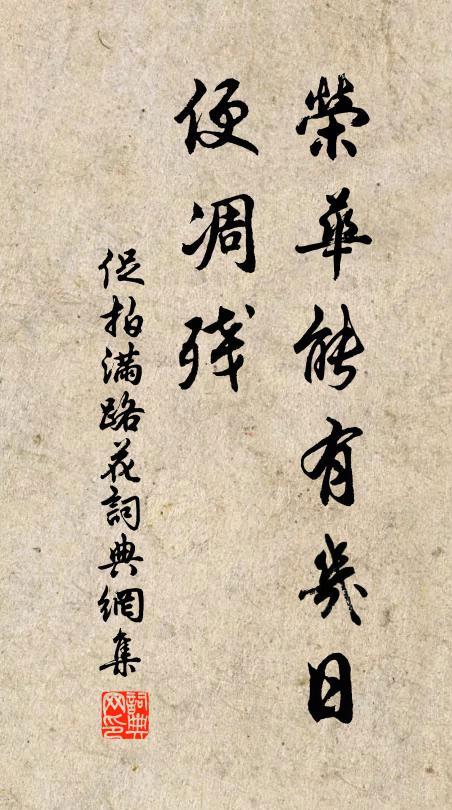 榮華能有幾日
便凋殘
促拍滿路花詞典網集
詞典網印